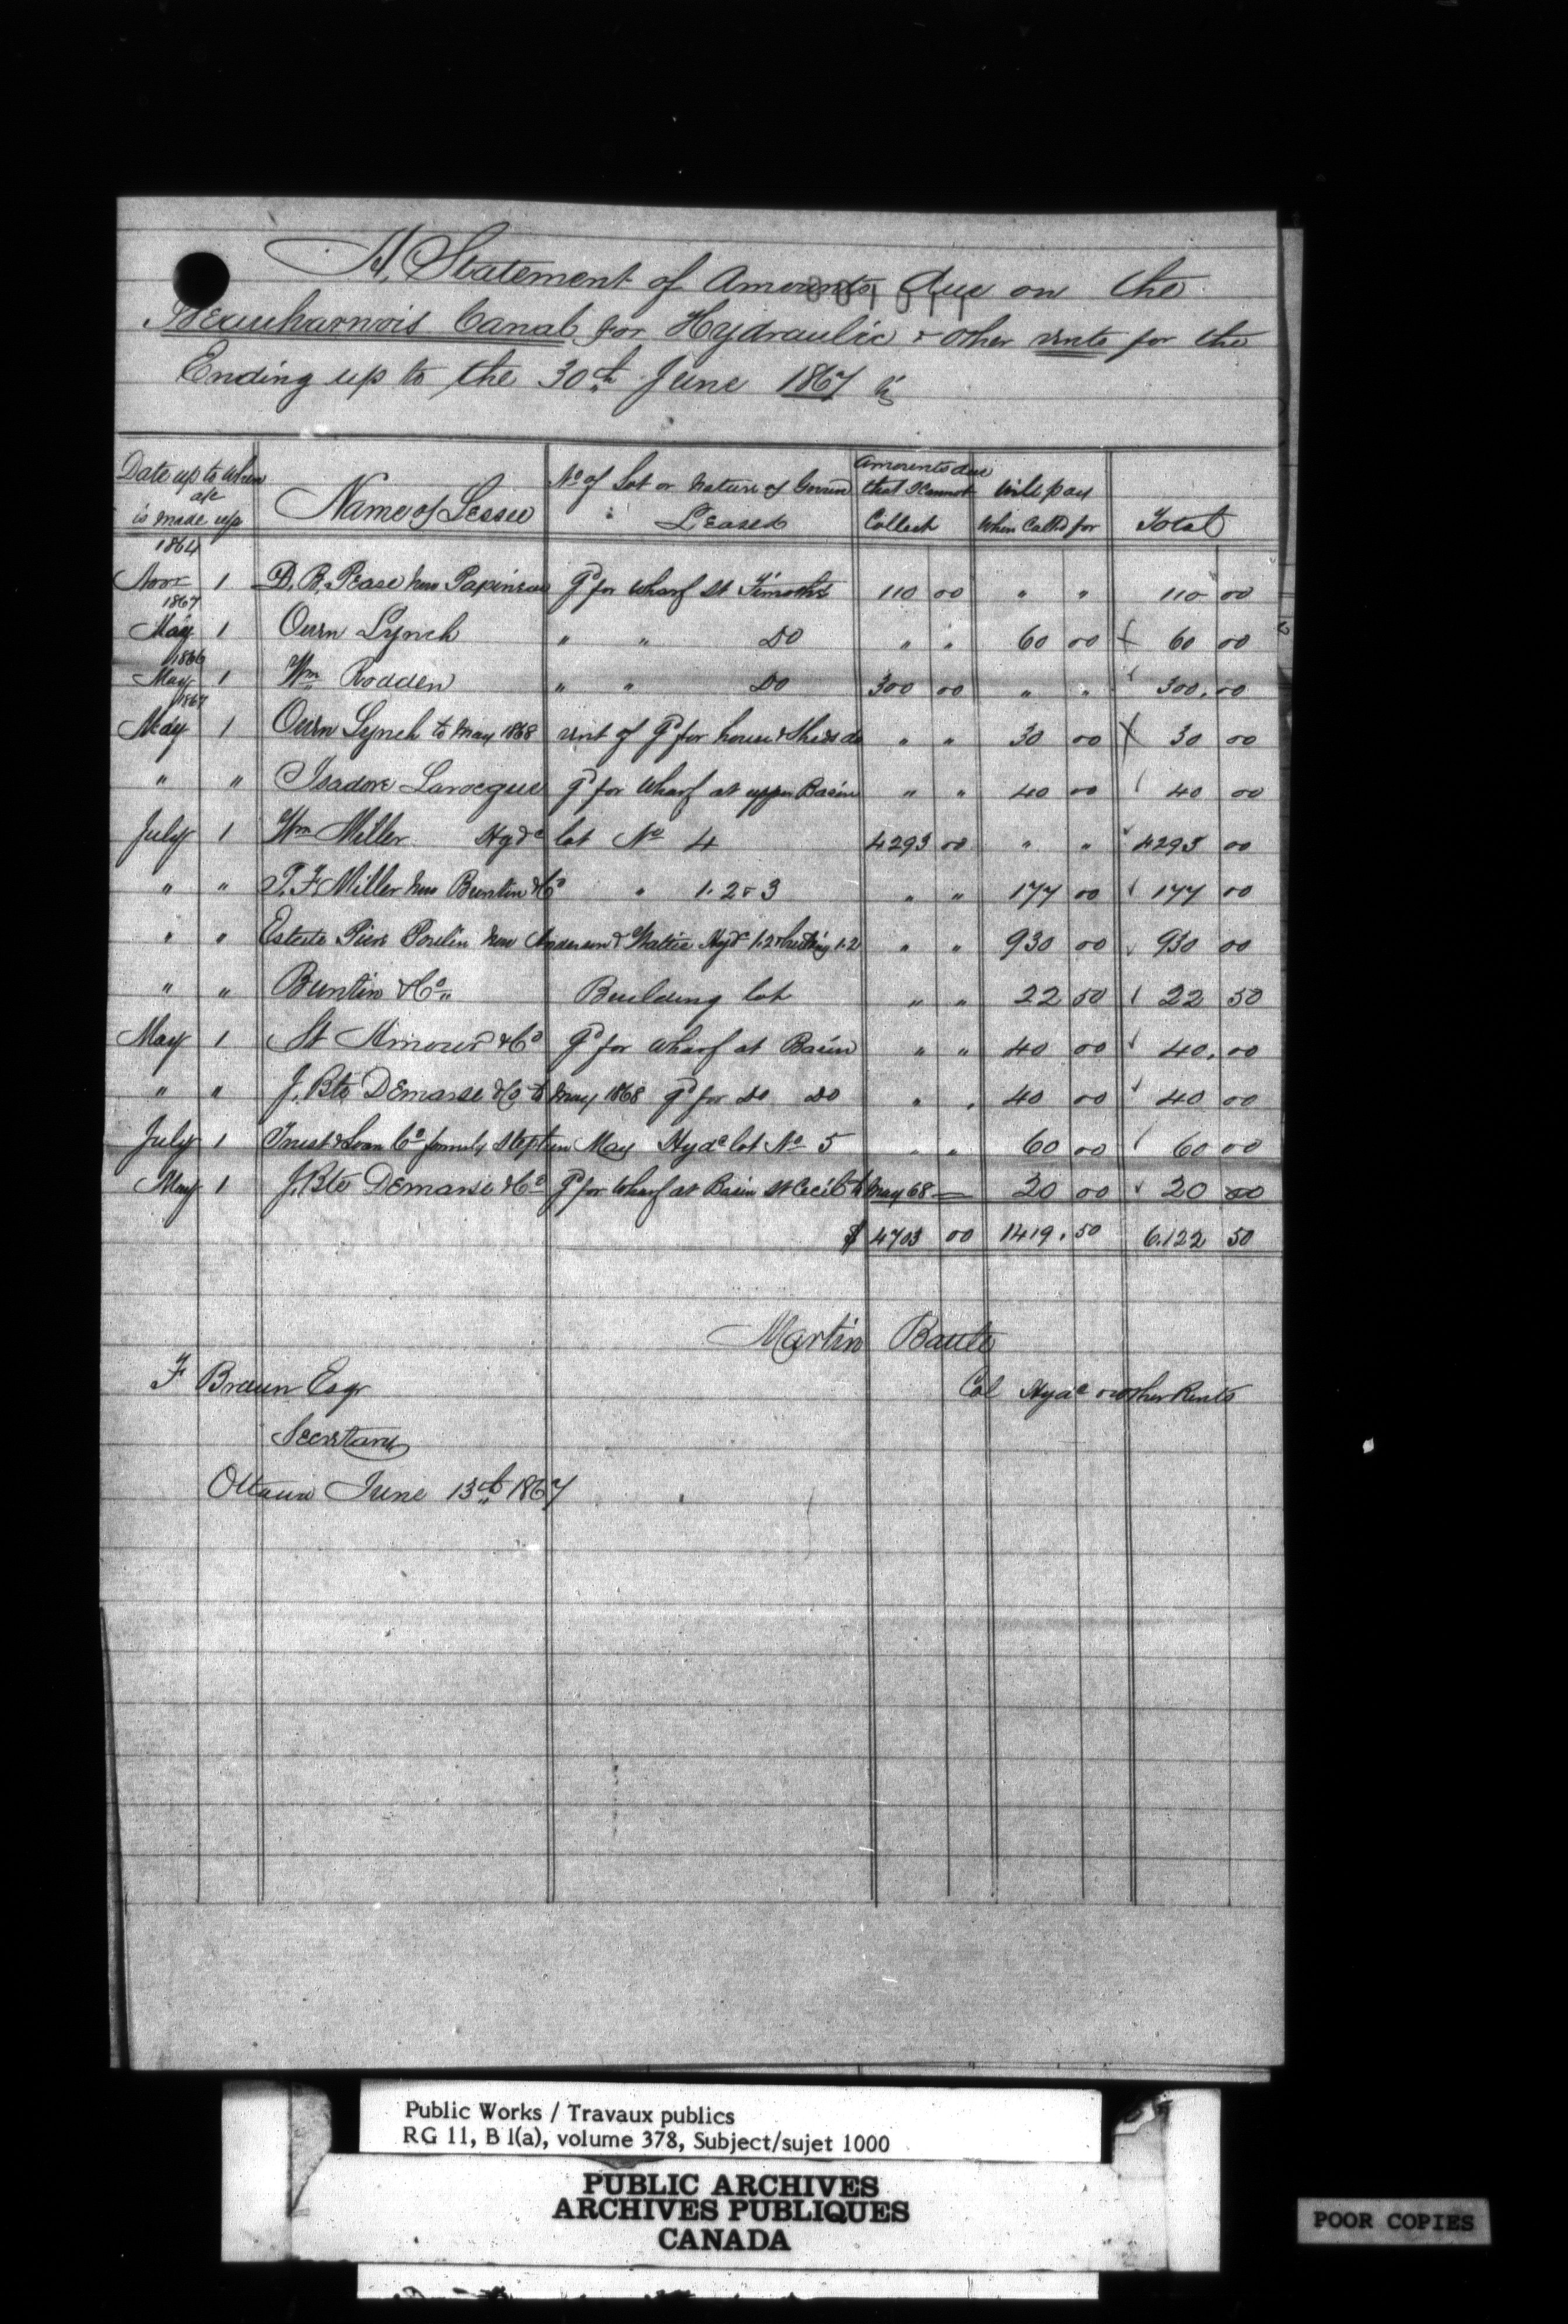 A, Statement of Amounts due on the
Beauharnois Canal for Hydraulic & other rents for the
Ending up to the 30th June 1867
Date up to when a/c is made up
Name of Lessee
No of Lot or Nature of Leased
Amounts due that I Cannot Collect
Will pay When Calld for
Total
1864
Novr 1 D. B. Pease now Papineau Gd for wharf St Timothé 110 00 " " 110 00
1867
May 1 Owen Lynch " " Do " " 60 00 60 00
1866
May 1 Wm Rodden " " Do 300 00 " " 300.00
1867
May 1 Owen Lynch to May 1868 rent of Gd for house & Sheds do " " 30 00 30 00
" " Isadore Larocque Gd for Wharf at upper Basin " " 40 00 40 00
July 1 Wm Miller Hydc lot No 4 4293 00 " " 4293 00
" " T. F. Miller now Buntin & Co " 1. 2 & 3 " " 177 00 177 00
" " Estate Piere Poulin now Anderson & Wattie Hydc 1.2 & building 1.2 " " 930 00 930 00
" " Buntin & Co " Building lot " " 22 50 22 50
May 1 St Amour & Co Gd for wharf at Basin " " 40 00 40.00
" " J. Bte Demarse & Co to May 1868 Gd for Do Do " " 40 00 40 00
July 1 Trust & Loan Co formerly Stephen May Hydc lot No 5 " " 60 00 60 00
May 1 J. Bte Demarse & Co Gd for Wharf at Basin St Cecil to May 68 20 00 20 00
$ 4703 00 1419.50 6.122 50
Martin
Col Hydc & other Rents
F Braun Esqr
Secretary
Ottawa June 13th 1867
Public Works / Travaux publics
RG 11, B 1(a), volume 378, Subject/sujet 1000
PUBLIC ARCHIVES
ARCHIVES PUBLIQUES
CANADA
POOR COPIES